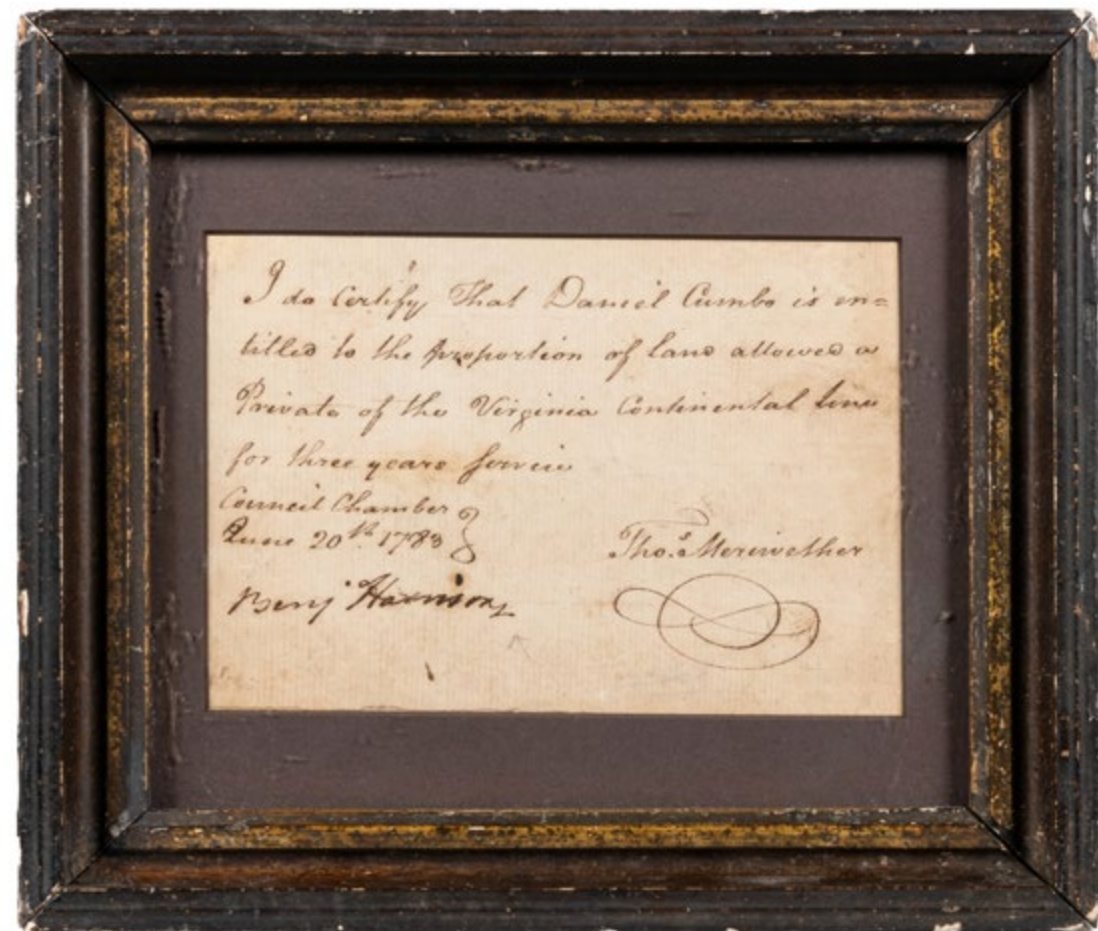 I do Certify That Daniel Cumbo is en=
titled to the proportion of land allowed a
Private of the Virginia Continental line
for three years Service
Council Chamber
June 20th. 1783
Thos. Meriwether
Benj Harrison